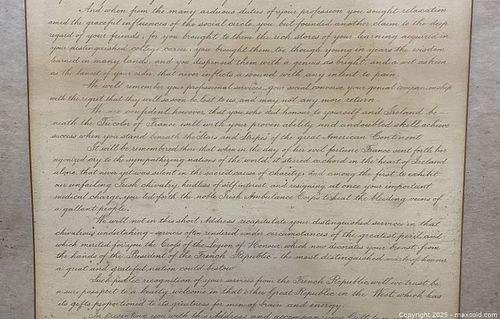 And when from the many arduous duties of your profession you sought relaxation
amid the graceful influences of the social circle, you but founded another claim to the deep
regard of your friends; for you brought to them the rich stores of your learning acquired in
your distinguished college career; you brought them, too, though young in years the wisdom
learned in many lands, and you dispensed them with a genius as bright, and a wit as keen
as the lancet of your order, that never inflicts a wound with any intent to pain.
We well remember your professional services, your social converse, your genial companionship
with the regret that they will so soon be lost to us, and may not any more return
We are confident, however, that you who did honour to yourself and Ireland be-
neath the Tricolor of France will with your proven ability and undoubted skill achieve
success when you stand beneath the Stars and Stripes of the great American Continent.
It will be remembered here that when in the day of her evil fortune France sent forth her
agonized cry to the sympathizing nations of the world, it stirred a chord in the heart of Ireland
alone, that never yet was silent in the sacred cause of charity; And among the first to exhibit
our unfailing Irish chivalry, heedless of self interest, and resigning at once your important
medical charge, you led forth the noble Irish Ambulance Corps to heal the bleeding veins of
a gallant people.
We will not in this short Address, recapitulate your distinguished services in that
chivalrous undertaking - services often rendered under circumstances of the greatest peril and
which merited for you the Cross of the Legion of Honour which now decorates your breast, from
the hands of the President of the French Republic - the most distinguished mark of honor
a great and grateful nation could bestow
Such public recognition of your services from the French Republic will we trust be
a sure passport to a hearty welcome in that other Great Republic in the West which has
its gifts proportioned to its greatness for men of brain and energy.
In presenting you with this Address and accompanying